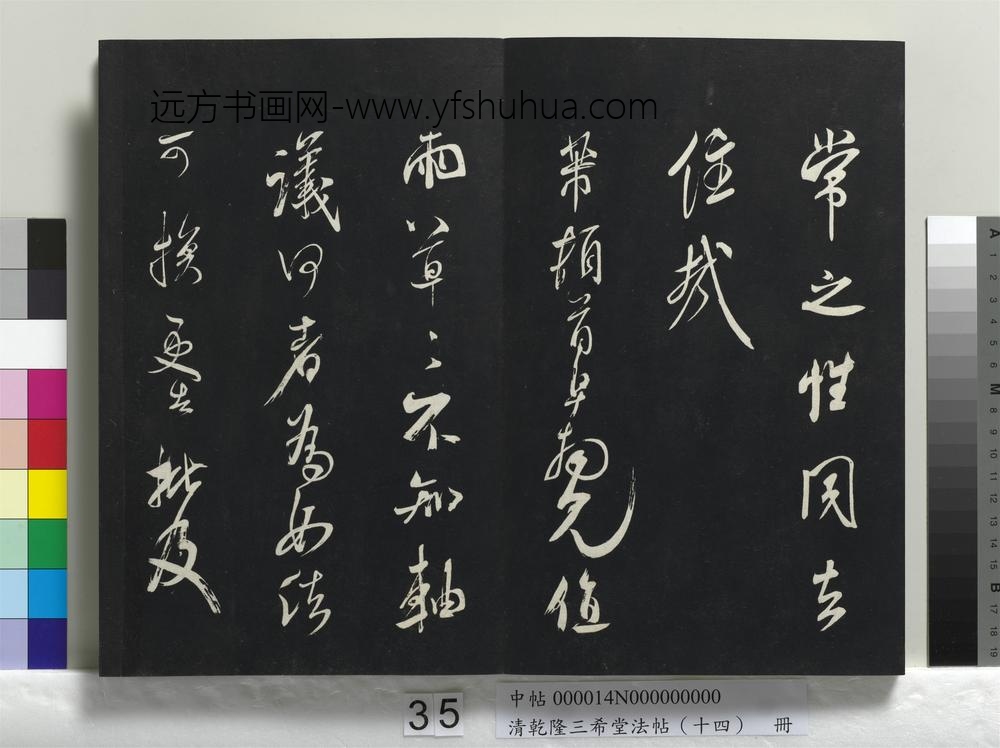 远方书画网-www.yfshuhua.com
常之性同去
住哉
芾頓首早見值
雨草〻不知軸
議何者為如法
可換更告批及
35
中帖 000014N000000000
清乾隆三希堂法帖（十四） 冊
A 1 2 3 4 5 6 M 8 9 10 11 12 13 14 15 B 17 18 19